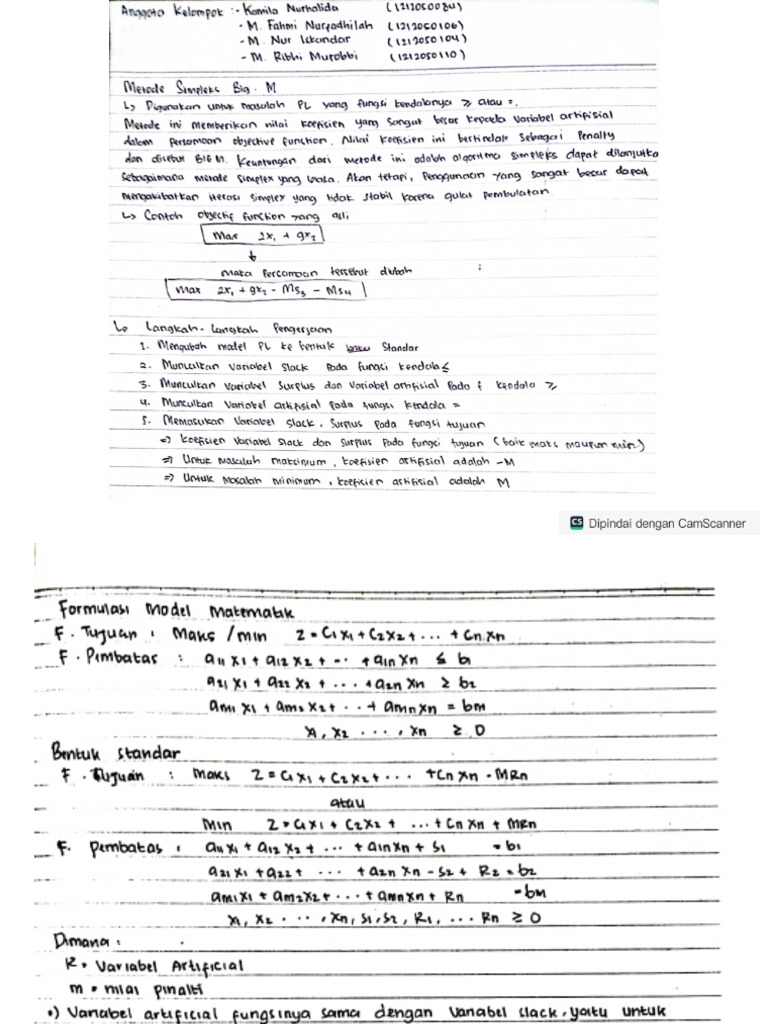 Anggota Kelompok : - Kamila Nurhalida (1212050084)
- M. Fahmi Nurfadhilah (1212050106)
- M. Nur Iskandar (1212050104)
- M. Ribhi Murobbi (1212050110)
Metode Simpleks Big. M
↳ Digunakan untuk masalah PL yang fungsi kendalanya ≥ atau =.
Metode ini memberikan nilai koefisien yang sangat besar kepada Variabel artifisial
dalam persamaan objective function. Nilai koefisien ini bertindak sebagai Penalty
dan disebut BIG M. Keuntungan dari metode ini adalah algoritma simpleks dapat dilanjutka
sebagaimana metode simplex yang biasa. Akan tetapi, Penggunaan yang sangat besar dapat
mengakibatkan iterasi simplex yang tidak stabil karena galat pembulatan.
↳ Contoh objectif function yang asli
Max 2x₁ + 9x₂
↓
maka Persamaan tersebut diubah
Max 2x₁ + 9x₂ - MS₃ - MS₄
↳ Langkah-langkah Pengerjaan
1. Mengubah model PL ke bentuk Standar
2. Munculkan variabel slack Pada fungsi kendala ≤
3. Munculkan Variabel Surplus dan Variabel artifisial Pada f kendala ≥
4. Munculkan Variabel artifisial Pada fungsi kendala =
5. Memasukan Variabel slack, Surplus Pada fungsi tujuan
⇒ koefisien Variabel slack dan Surplus Pada fungsi tujuan (baik maks maupun min)
⇒ Untuk masalah maksimum, koefisien artifisial adalah -M
⇒ Untuk masalah minimum, koefisien artifisial adalah M
CS Dipindai dengan CamScanner
Formulasi Model Matematik
F. Tujuan : Maks /min Z = C₁X₁ + C₂X₂ + ... + CnXn
F. Pembatas : a₁₁ X₁ + a₁₂ X₂ + ... + a₁n Xn ≤ b₁
a₂₁ X₁ + a₂₂ X₂ + ... + a₂n Xn ≥ b₂
am₁ X₁ + am₂ X₂ + ... + amn Xn = bm
X₁, X₂ ..., Xn ≥ 0
Bentuk standar
F. Tujuan : Maks Z = C₁X₁ + C₂X₂ + ... + Cn Xn - MRn
atau
Min Z = C₁X₁ + C₂X₂ + ... + Cn Xn + MRn
F. Pembatas : a₁₁X₁ + a₁₂ X₂ + ... + a₁n Xn + S₁ = b₁
a₂₁ X₁ + a₂₂ + ... + a₂n Xn - S₂ + R₂ = b₂
am₁X₁ + am₂X₂ + ... + amnXn + Rn = bm
X₁, X₂ ..., Xn, S₁, S₂, R₁, ... Rn ≥ 0
Dimana :
R = Variabel Artificial
m = nilai pinalti
•) Variabel artificial fungsinya sama dengan Variabel slack, yaitu untuk